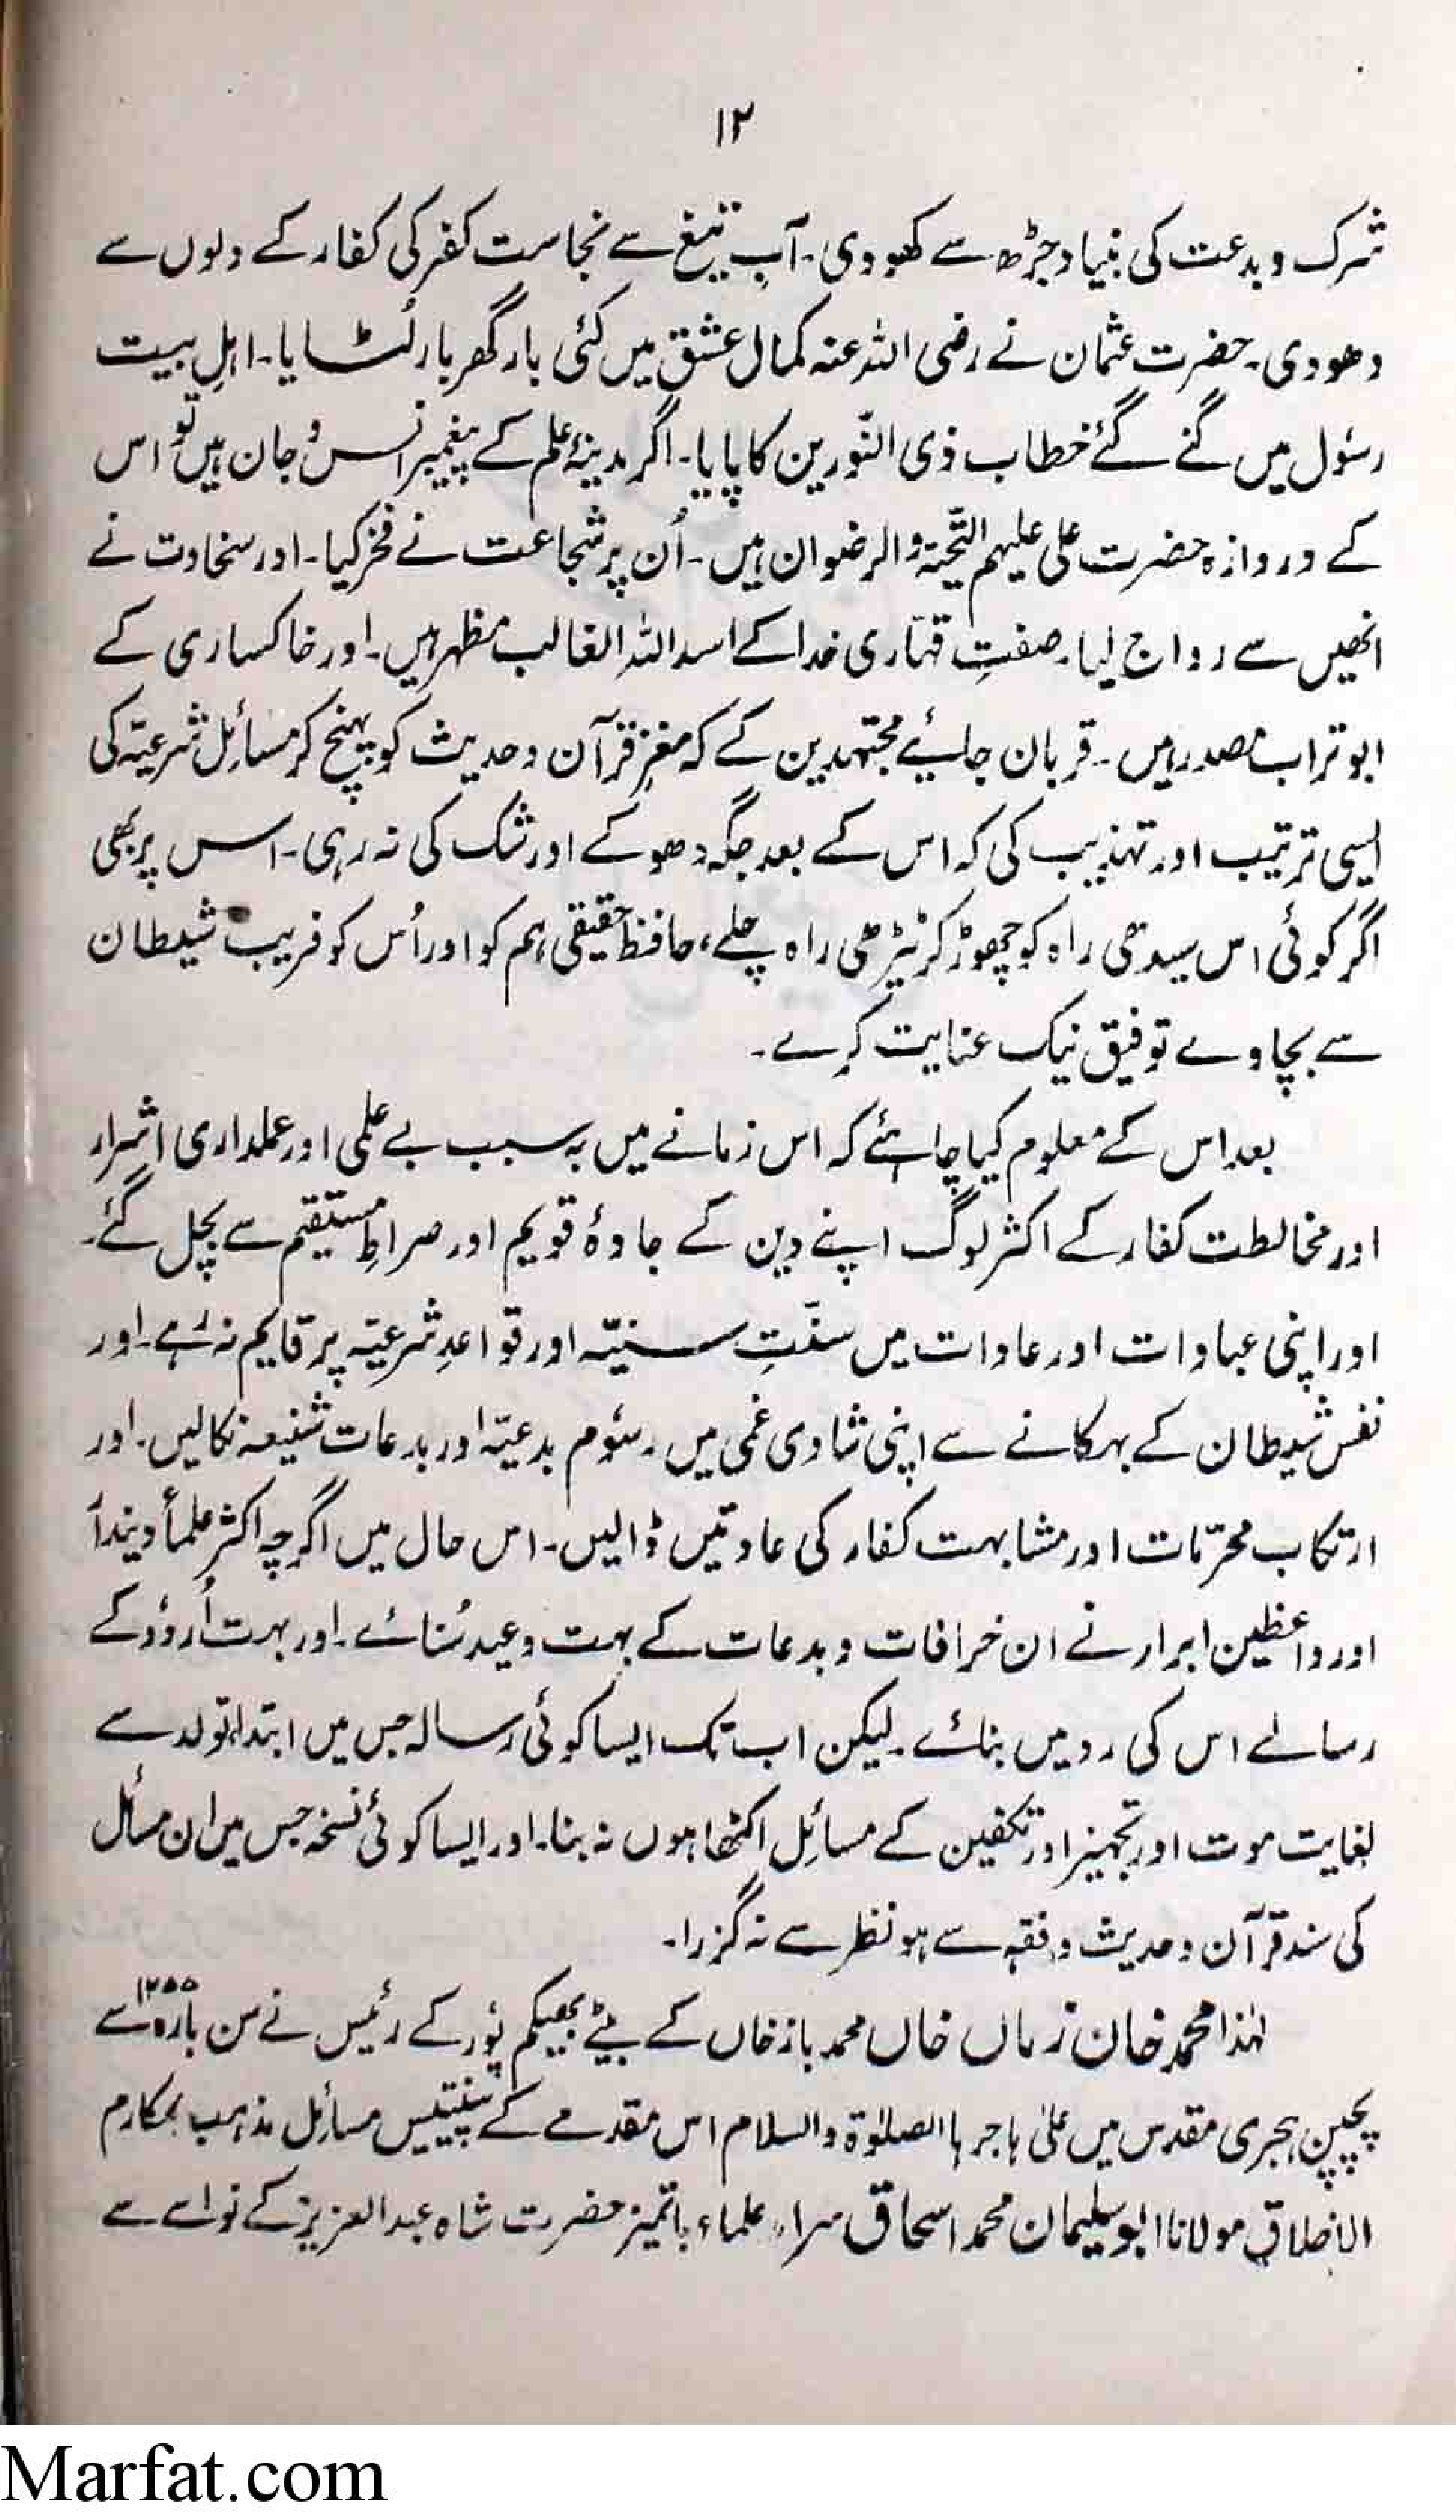 ۱۲
شرک و بدعت کی بنیاد جڑھ سے کھودی۔ آبِ تیغ سے نجاست کفر کی کفار کے دلوں سے
دھودی۔ حضرت عثمان نے رضی اللہ عنہ کمال عشق میں کئی بار گھر بار لُٹایا۔ اہلِ بیت
رسُول میں گنے گئے خطاب ذی النّورین کا پایا۔ اگر مدینۂ علم کے پیغمبر انس و جان ہیں تو اس
کے دروازہ حضرت علی علیہم التحیّۃ والرضوان ہیں۔ اُن پر شجاعت نے فخر کیا۔ اور سخاوت نے
انھیں سے رواج لیا۔ صفتِ قہّاری خدا کے اسد اللہ الغالب مظہر ہیں۔ اور خاکساری کے
ابو تراب مصدر ہیں۔ قربان جائیے مجتہدین کے کہ مغزِ قرآن و حدیث کو پہنچ کر مسائلِ شرعیّہ کی
ایسی ترتیب اور تہذیب کی کہ اس کے بعد جگہ دھوکے اور شک کی نہ رہی۔ اس پر بھی
اگر کوئی اس سیدھی راہ کو چھوڑ کر ٹیڑھی راہ چلے، حافظ حقیقی ہم کو اور اُس کو فریب شیطان
سے بچاوے توفیق نیک عنایت کرے۔
بعد اس کے معلوم کیا چاہئے کہ اس زمانے میں بہ سبب بے علمی اور عملداری اشرار
اور مخالطت کفار کے اکثر لوگ اپنے دین کے جادۂ قویم اور صراطِ مستقیم سے بچل گئے۔
اور اپنی عبادات اور عادات میں سنّتِ سنیّہ اور قواعدِ شرعیّہ پر قایم نہ رہے۔ اور
نفس شیطان کے بہکانے سے اپنی شادی غمی میں رسُوم بدعیّہ اور بدعات شنیعہ نکالیں۔ اور
ارتکاب محرّمات اور مشابہت کفار کی عادتیں ڈالیں۔ اس حال میں اگرچہ اکثر علمأ دیندار
اور واعظین ابرار نے ان خرافات و بدعات کے بہت وعید سُنائے۔ اور بہت اُردو کے
رسالے اس کی رد میں بنائے۔ لیکن اب تک ایسا کوئی رسالہ جس میں ابتدا تولد سے
لغایت موت اور تجہیز اور تکفین کے مسائل اکٹھا ہوں نہ بنا۔ اور ایسا کوئی نسخہ جس میں ان مسائل
کی سند قرآن و حدیث و فقہ سے ہو نظر سے نہ گزرا۔
لہٰذا محمد خان زماں خاں محمد باز خاں کے بیٹے بھیکم پُور کے رئیس نے سن بارہ سے ۱۲۵۵
پچپن ہجری مقدس میں علیٰ ہاجرہا الصلوٰۃ والسلام اس مقدمے کے پینتیس مسائل مذہب بمکارم
الاخلاق مولانا ابو سلیمان محمد اسحاق سرآمد علماء باتمیز حضرت شاہ عبد العزیز کے نواسے سے
Marfat.com